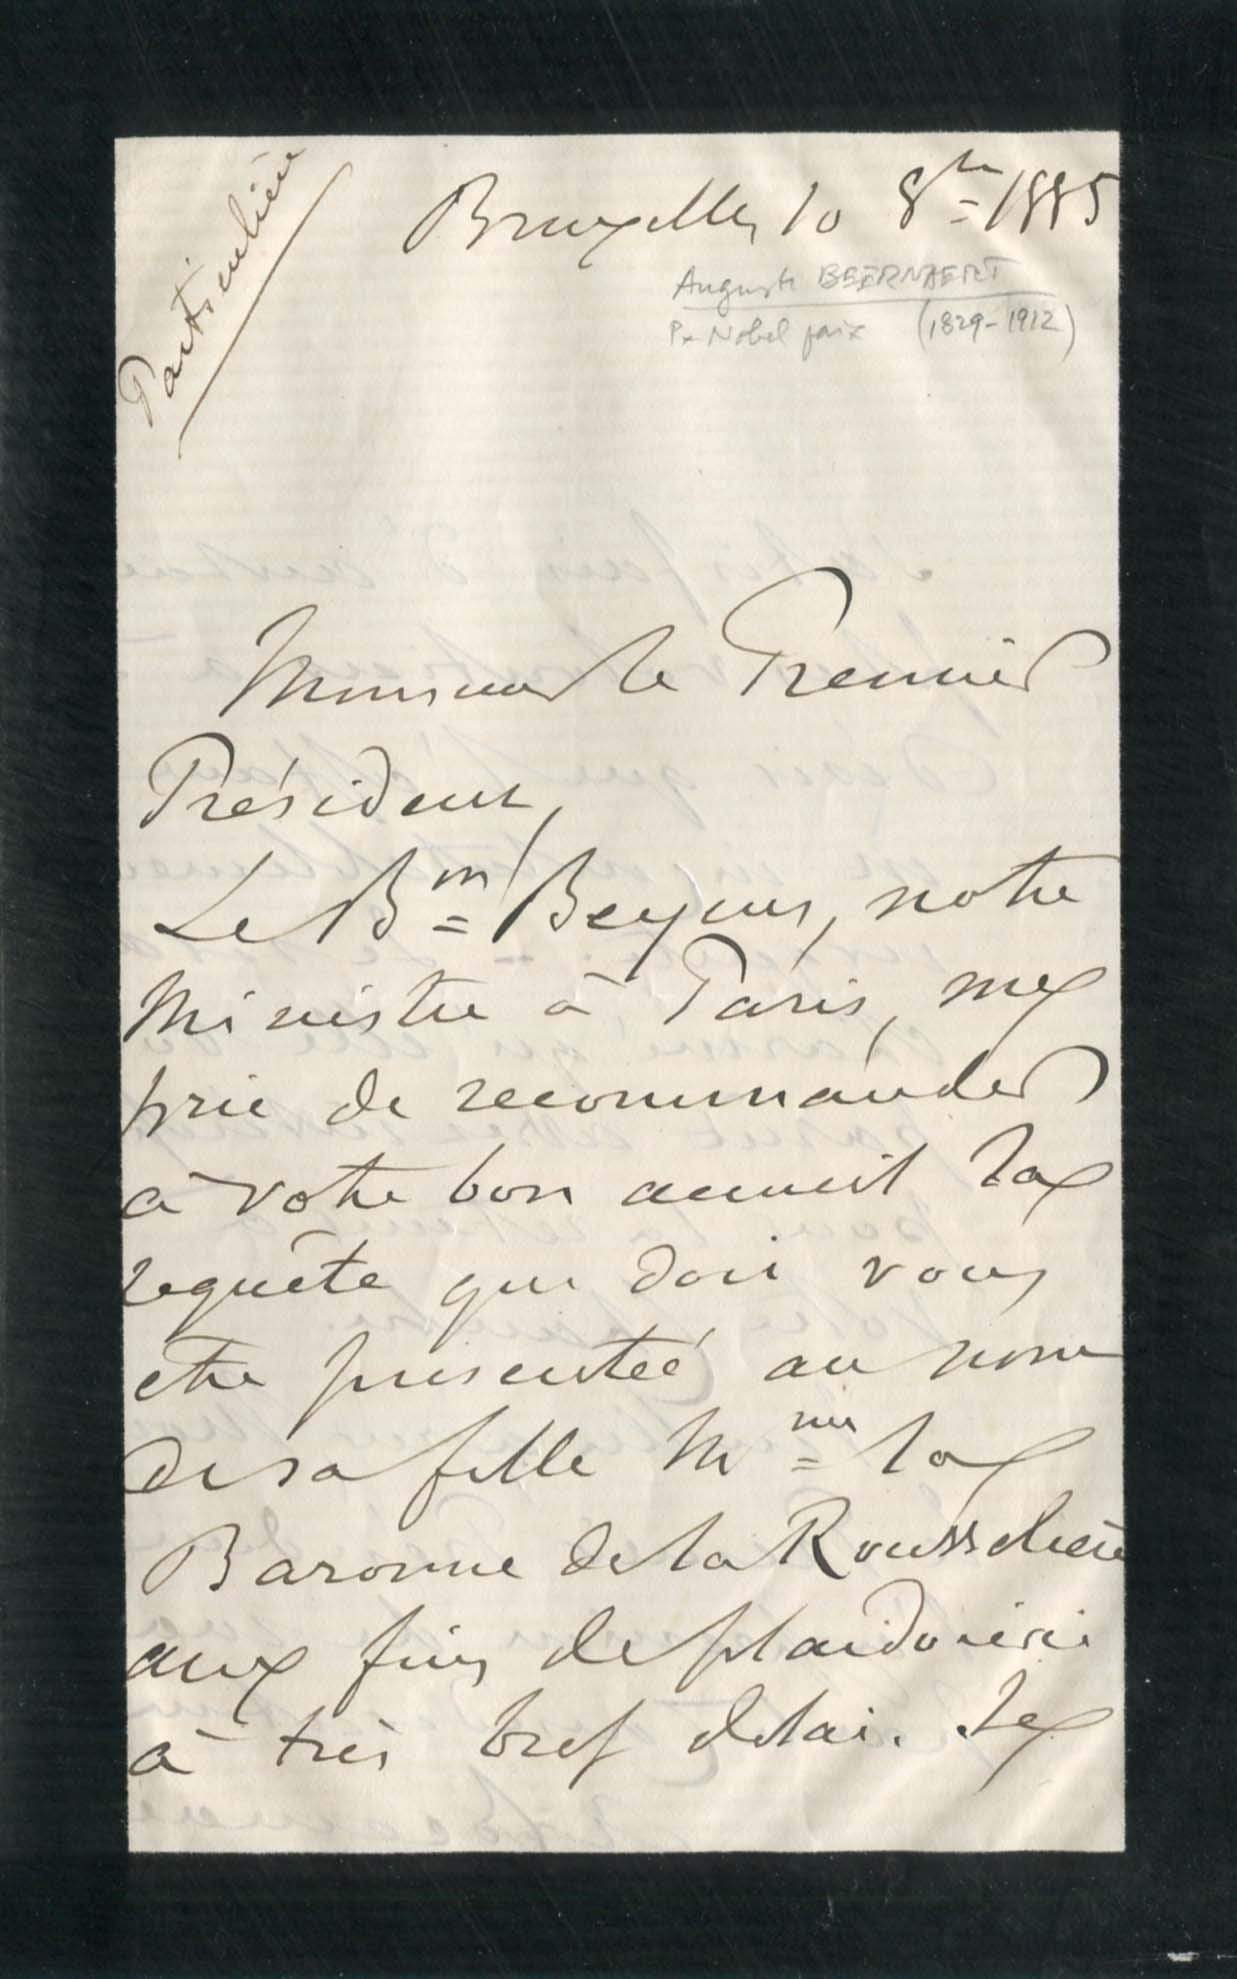 Particulière
Bruxelles, 10 8bre 1885
Auguste BEERNAERT
Px Nobel paix (1829-1912)
Monsieur le Premier
Président,
Le Bon Beyens, notre
Ministre à Paris, me
prie de recommander
à votre bon accueil la
requête qui doit vous
etre presentée au nom
de sa fille Mme la
Baronne de la Rousselière
aux fins de plaidoirie
à très bref delai. Je